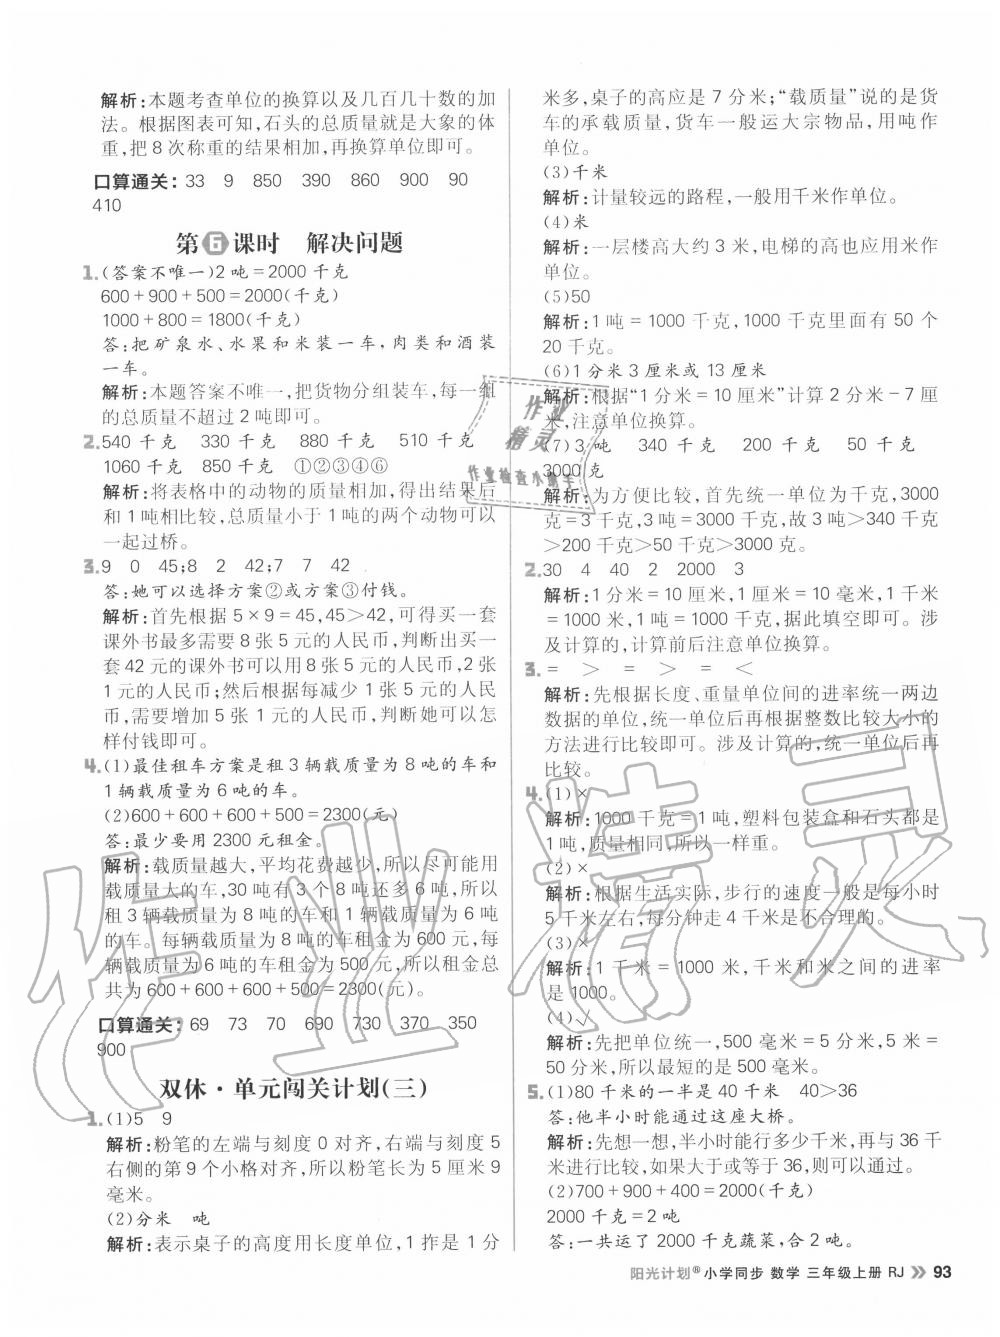 解析:本题考查单位的换算以及几百几十数的加
法。根据图表可知,石头的总质量就是大象的体
重,把8次称重的结果相加,再换算单位即可。
口算通关: 33 9 850 390 860 900 90
410
第6课时 解决问题
1.(答案不唯一)2吨=2000千克
600+900+500=2000(千克)
1000+800=1800(千克)
答:把矿泉水、水果和米装一车,肉类和酒装
一车。
解析:本题答案不唯一,把货物分组装车,每一组
的总质量不超过2吨即可。
2.540千克 330千克 880千克 510千克
1060千克 850千克 ①②③④⑥
解析:将表格中的动物的质量相加,得出结果后
和1吨相比较,总质量小于1吨的两个动物可以
一起过桥。
3.9 0 45;8 2 42;7 7 42
答:她可以选择方案②或方案③付钱。
解析:首先根据5×9=45,45>42,可得买一套
课外书最多需要8张5元的人民币,判断出买一
套42元的课外书可以用8张5元的人民币,2张
1元的人民币;然后根据每减少1张5元的人民
币,需要增加5张1元的人民币,判断她可以怎
样付钱即可。
4.(1)最佳租车方案是租3辆载质量为8吨的车和
1辆载质量为6吨的车。
(2)600+600+600+500=2300(元)
答:最少要用2300元租金。
解析:载质量越大,平均花费越少,所以尽可能用
载质量大的车,30吨有3个8吨还多6吨,所以
租3辆载质量为8吨的车和1辆载质量为6吨
的车。每辆载质量为8吨的车租金为600元,每
辆载质量为6吨的车租金为500元,所以租金总
共为600+600+600+500=2300(元)。
口算通关: 69 73 70 690 730 370 350
900
双休·单元闯关计划(三)
1.(1)5 9
解析:粉笔的左端与刻度0对齐,右端与刻度5
右侧的第9个小格对齐,所以粉笔长为5厘米9
毫米。
(2)分米 吨
解析:表示桌子的高度用长度单位,1拃是1分
米多,桌子的高应是7分米;“载质量”说的是货
车的承载质量,货车一般运大宗物品,用吨作
单位。
(3)千米
解析:计量较远的路程,一般用千米作单位。
(4)米
解析:一层楼高大约3米,电梯的高也应用米作
单位。
(5)50
解析:1吨=1000千克,1000千克里面有50个
20千克。
(6)1分米3厘米或13厘米
解析:根据“1分米=10厘米”计算2分米-7厘
米,注意单位换算。
(7)3吨 340千克 200千克 50千克
3000克
解析:为方便比较,首先统一单位为千克,3000
克=3千克,3吨=3000千克,故3吨>340千克
>200千克>50千克>3000克。
2.30 4 40 2 2000 3
解析:1分米=10厘米,1厘米=10毫米,1千米
=1000米,1吨=1000千克,据此填空即可。涉
及计算的,计算前后注意单位换算。
3.= > > = <
解析:先根据长度、重量单位间的进率统一两边
数据的单位,统一单位后再根据整数比较大小的
方法进行比较即可。涉及计算的,统一单位后再
比较。
4.(1)×
解析:1000千克=1吨,塑料包装盒和石头都是
1吨,质量相同,所以一样重。
(2)×
解析:根据生活实际,步行的速度一般是每小时
5千米左右,每分钟走4千米是不合理的。
(3)×
解析:1千米=1000米,千米和米之间的进率
是1000。
(4)√
解析:先把单位统一,500毫米=5分米,5米=
50分米,所以最短的是500毫米。
5.(1)80千米的一半是40千米 40>36
答:他半小时能通过这座大桥。
解析:先想一想,半小时能行多少千米,再与36千
米进行比较,如果大于或等于36,则可以通过。
(2)700+900+400=2000(千克)
2000千克=2吨
答:一共运了2000千克蔬菜,合2吨。
阳光计划®小学同步 数学 三年级上册 RJ 93
作业
精灵
作业检查小助手
作业精灵